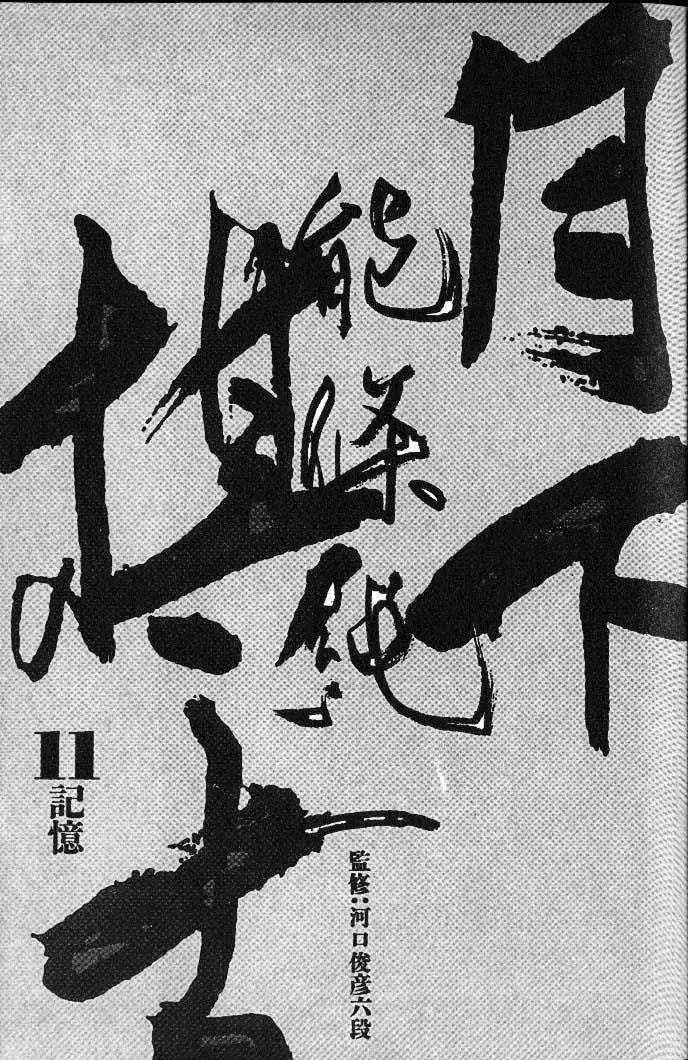 月下の棋士
能條純一
11
記憶
監修:河口俊彦六段